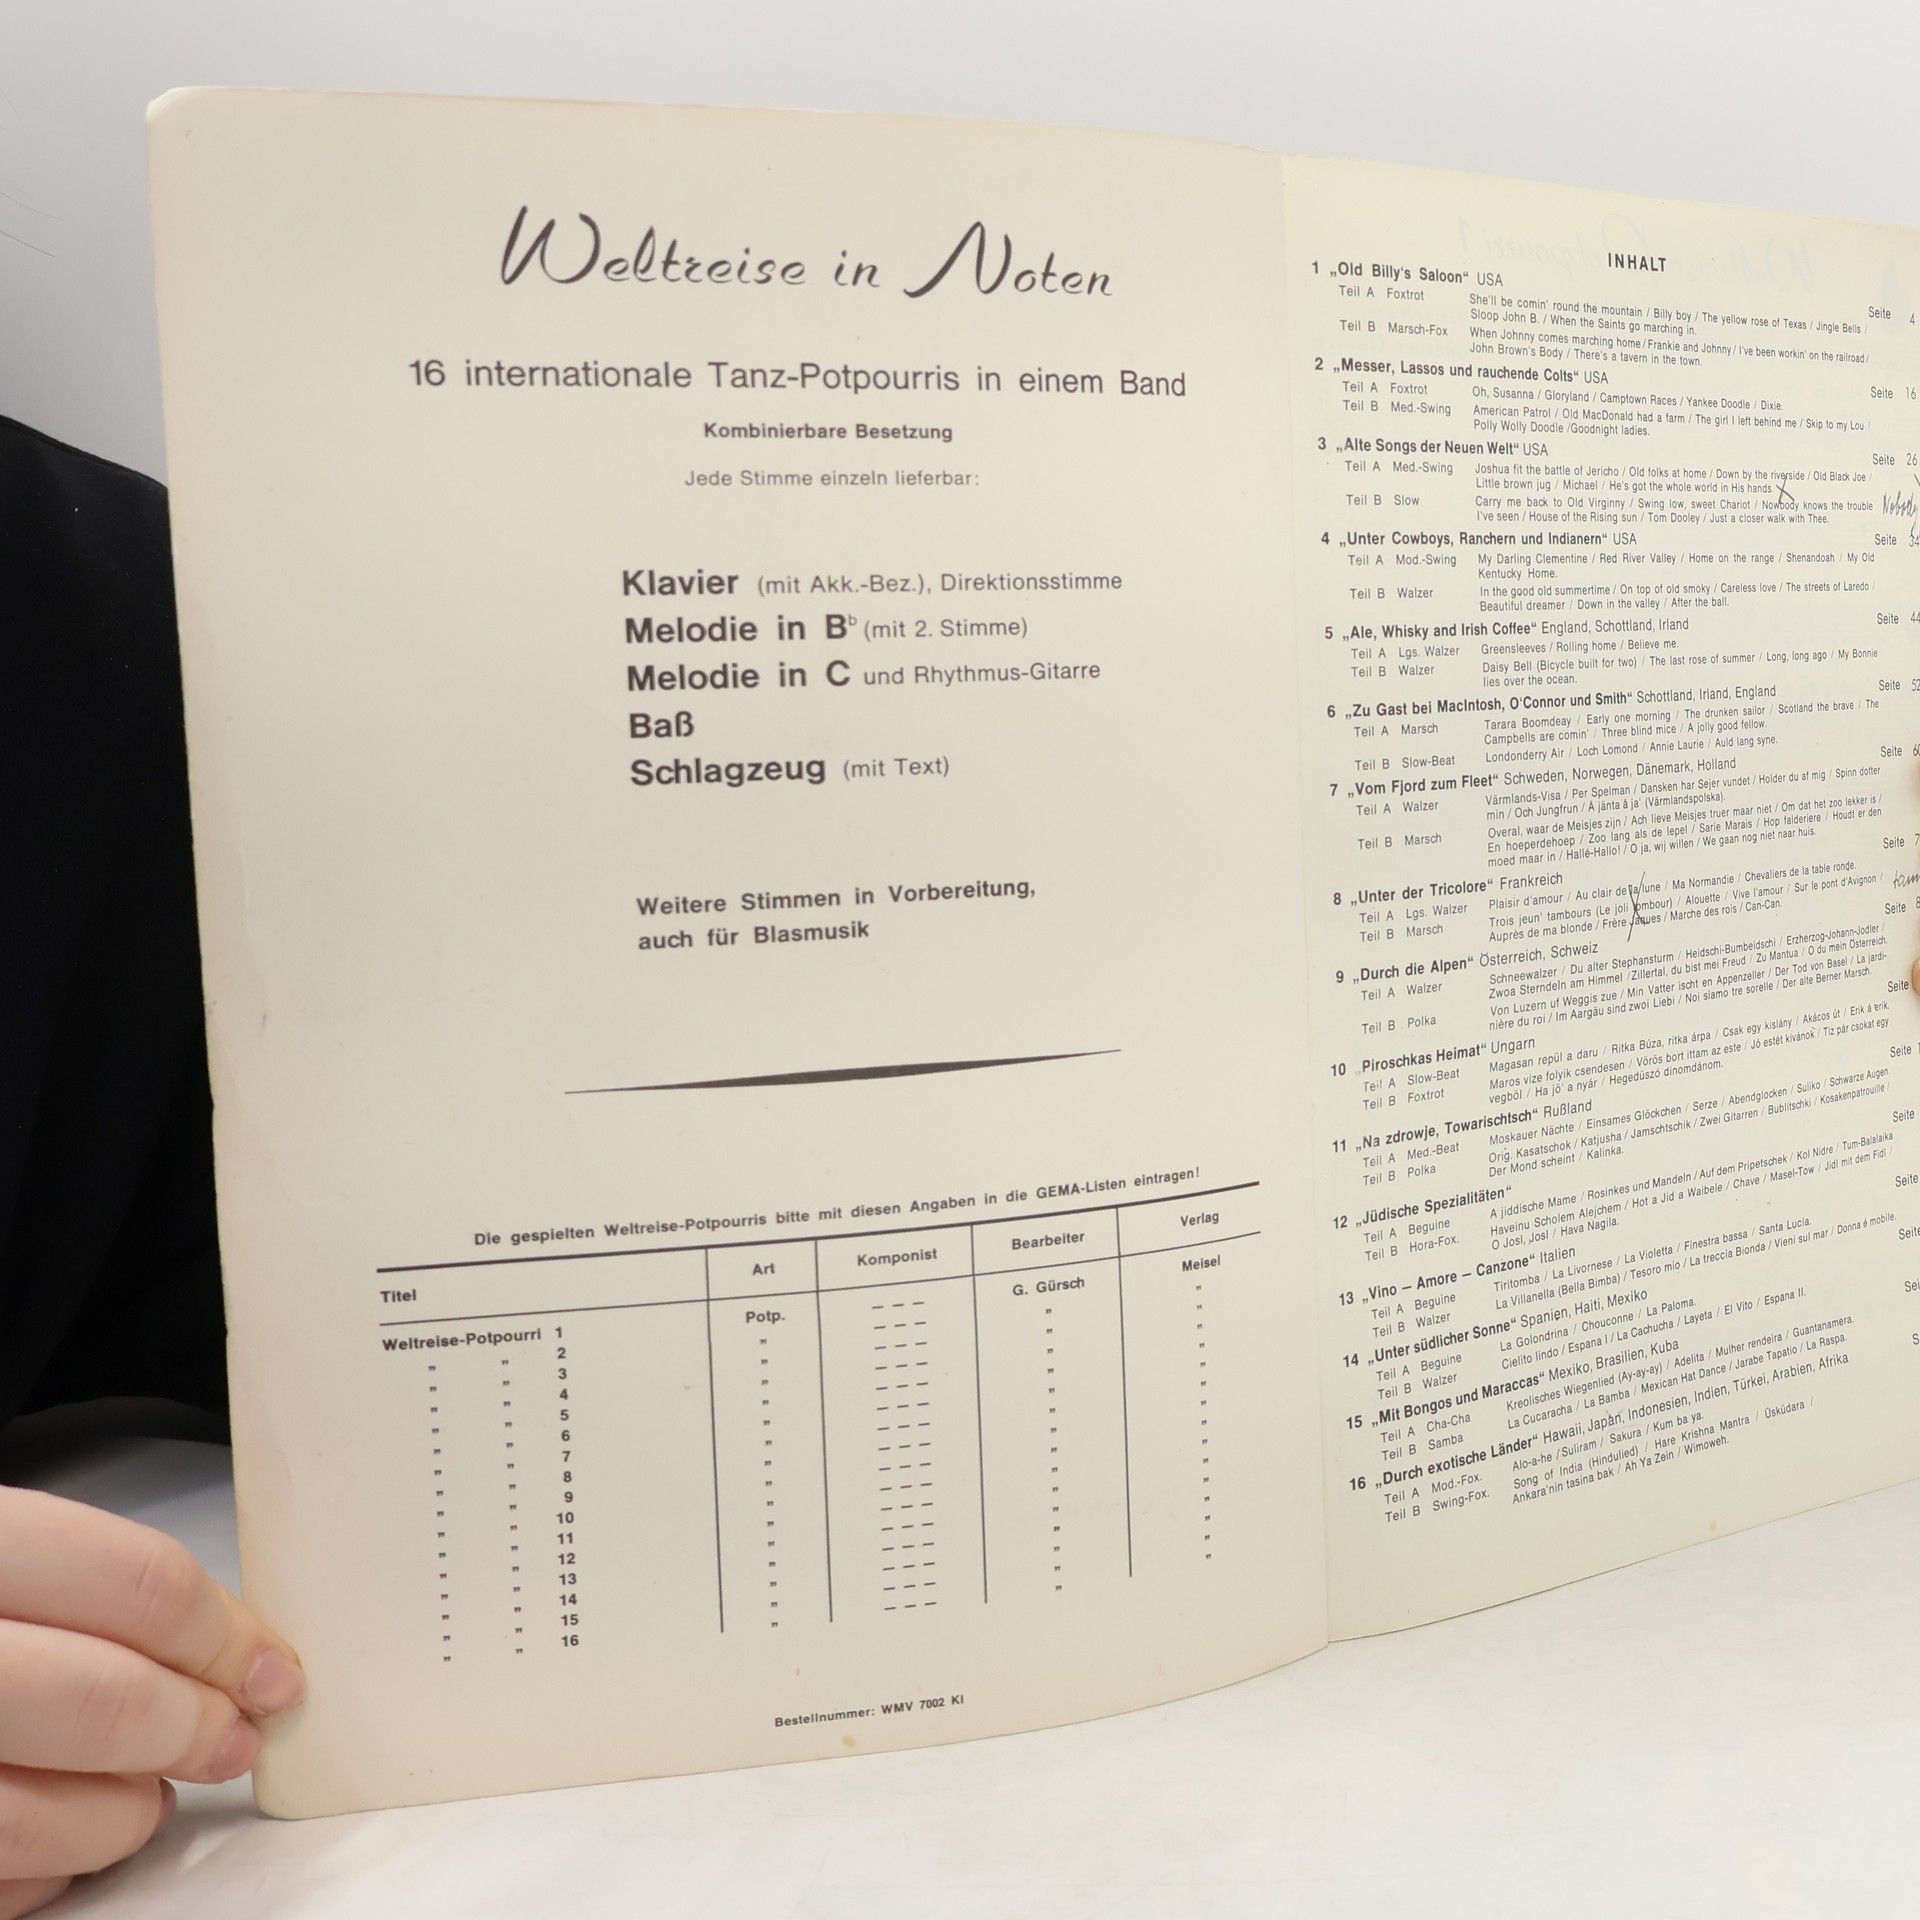 Weltreise in Noten
16 internationale Tanz-Potpourris in einem Band
Kombinierbare Besetzung
Jede Stimme einzeln lieferbar:
Klavier (mit Akk.-Bez.), Direktionsstimme
Melodie in B♭ (mit 2. Stimme)
Melodie in C und Rhythmus-Gitarre
Baß
Schlagzeug (mit Text)
Weitere Stimmen in Vorbereitung,
auch für Blasmusik
Die gespielten Weltreise-Potpourris bitte mit diesen Angaben in die GEMA-Listen eintragen!
Titel Art Komponist Bearbeiter Verlag
Weltreise-Potpourri 1 Potp. – – – G. Gürsch Meisel
" " 2 " – – – " "
" " 3 " – – – " "
" " 4 " – – – " "
" " 5 " – – – " "
" " 6 " – – – " "
" " 7 " – – – " "
" " 8 " – – – " "
" " 9 " – – – " "
" " 10 " – – – " "
" " 11 " – – – " "
" " 12 " – – – " "
" " 13 " – – – " "
" " 14 " – – – " "
" " 15 " – – – " "
" " 16 " – – – " "
Bestellnummer: WMV 7002 Kl
INHALT
1 „Old Billy's Saloon“ USA Seite 4
Teil A Foxtrot She'll be comin' round the mountain / Billy boy / The yellow rose of Texas / Jingle Bells /
Sloop John B. / When the Saints go marching in.
Teil B Marsch-Fox When Johnny comes marching home / Frankie and Johnny / I've been workin' on the railroad /
John Brown's Body / There's a tavern in the town.
2 „Messer, Lassos und rauchende Colts“ USA Seite 16
Teil A Foxtrot Oh, Susanna / Gloryland / Camptown Races / Yankee Doodle / Dixie.
Teil B Med.-Swing American Patrol / Old MacDonald had a farm / The girl I left behind me / Skip to my Lou /
Polly Wolly Doodle /Goodnight ladies.
3 „Alte Songs der Neuen Welt“ USA Seite 26
Teil A Med.-Swing Joshua fit the battle of Jericho / Old folks at home / Down by the riverside / Old Black Joe /
Little brown jug / Michael / He's got the whole world in His hands.
Teil B Slow Carry me back to Old Virginny / Swing low, sweet Chariot / Nowbody knows the trouble Nobody
I've seen / House of the Rising sun / Tom Dooley / Just a closer walk with Thee.
4 „Unter Cowboys, Ranchern und Indianern“ USA Seite 34
Teil A Mod.-Swing My Darling Clementine / Red River Valley / Home on the range / Shenandoah / My Old
Kentucky Home.
Teil B Walzer In the good old summertime / On top of old smoky / Careless love / The streets of Laredo /
Beautiful dreamer / Down in the valley / After the ball.
5 „Ale, Whisky and Irish Coffee“ England, Schottland, Irland Seite 44
Teil A Lgs. Walzer Greensleeves / Rolling home / Believe me.
Teil B Walzer Daisy Bell (Bicycle built for two) / The last rose of summer / Long, long ago / My Bonnie
lies over the ocean.
6 „Zu Gast bei MacIntosh, O'Connor und Smith“ Schottland, Irland, England Seite 52
Teil A Marsch Tarara Boomdeay / Early one morning / The drunken sailor / Scotland the brave / The
Campbells are comin' / Three blind mice / A jolly good fellow.
Teil B Slow-Beat Londonderry Air / Loch Lomond / Annie Laurie / Auld lang syne.
7 „Vom Fjord zum Fleet“ Schweden, Norwegen, Dänemark, Holland Seite 60
Teil A Walzer Värmlands-Visa / Per Spelman / Dansken har Sejer vundet / Holder du af mig / Spinn dotter
min / Och Jungfrun / Å jänta å ja' (Värmlandspolska).
Teil B Marsch Overal, waar de Meisjes zijn / Ach lieve Meisjes truer maar niet / Om dat het zoo lekker is /
En hoeperdehoep / Zoo lang als de lepel / Sarie Marais / Hop falderiere / Houdt er den
moed maar in / Hallé-Hallo! / O ja, wij willen / We gaan nog niet naar huis.
8 „Unter der Tricolore“ Frankreich Seite 7
Teil A Lgs. Walzer Plaisir d'amour / Au clair de la lune / Ma Normandie / Chevaliers de la table ronde.
Teil B Marsch Trois jeun' tambours (Le joli tombour) / Alouette / Vive l'amour / Sur le pont d'Avignon / tam
Auprès de ma blonde / Frère Jaques / Marche des rois / Can-Can.
9 „Durch die Alpen“ Österreich, Schweiz Seite 8
Teil A Walzer Schneewalzer / Du alter Stephansturm / Heidschi-Bumbeidschi / Erzherzog-Johann-Jodler /
Zwoa Sterndeln am Himmel /Zillertal, du bist mei Freud / Zu Mantua / O du mein Österreich.
Teil B Polka Von Luzern uf Weggis zue / Min Vatter ischt en Appenzeller / Der Tod von Basel / La jardi-
nière du roi / Im Aargäu sind zwoi Liebi / Noi siamo tre sorelle / Der alte Berner Marsch.
10 „Piroschkas Heimat“ Ungarn Seite
Teil A Slow-Beat Magasan repül a daru / Ritka Búza, ritka árpa / Csak egy kislány / Akácos út / Erik á erik.
Teil B Foxtrot Maros vize folyik csendesen / Vörös bort ittam az este / Jó estét kívánok / Tiz pár csokat egy
vegböl / Ha jö' a nyár / Hegedüszó dinomdánom.
11 „Na zdrowje, Towarischtsch“ Rußland Seite 1
Teil A Med.-Beat Moskauer Nächte / Einsames Glöckchen / Serze / Abendglocken / Suliko / Schwarze Augen.
Teil B Polka Orig. Kasatschok / Katjusha / Jamschtschik / Zwei Gitarren / Bublitschki / Kosakenpatrouille /
Der Mond scheint / Kalinka.
12 „Jüdische Spezialitäten“ Seite
Teil A Beguine A jiddische Mame / Rosinkes und Mandeln / Auf dem Pripetschek / Kol Nidre / Tum-Balalaika
Teil B Hora-Fox. Haveinu Scholem Alejchem / Hot a Jid a Waibele / Chave / Masel-Tow / Jidl mit dem Fidl /
O Josl, Josl / Hava Nagila.
13 „Vino – Amore – Canzone“ Italien Seite
Teil A Beguine Tiritomba / La Livornese / La Violetta / Finestra bassa / Santa Lucia.
Teil B Walzer La Villanella (Bella Bimba) / Tesoro mio / La treccia Bionda / Vieni sul mar / Donna é mobile.
14 „Unter südlicher Sonne“ Spanien, Haiti, Mexiko Seite
Teil A Beguine La Golondrina / Chouconne / La Paloma.
Teil B Walzer Cielito lindo / Espana I / La Cachucha / Layeta / El Vito / Espana II.
15 „Mit Bongos und Maraccas“ Mexiko, Brasilien, Kuba Sei
Teil A Cha-Cha Kreolisches Wiegenlied (Ay-ay-ay) / Adelita / Mulher rendeira / Guantanamera.
Teil B Samba La Cucaracha / La Bamba / Mexican Hat Dance / Jarabe Tapatio / La Raspa.
16 „Durch exotische Länder“ Hawaii, Japan, Indonesien, Indien, Türkei, Arabien, Afrika S
Teil A Mod.-Fox. Alo-a-he / Suliram / Sakura / Kum ba ya.
Teil B Swing-Fox. Song of India (Hindulied) / Hare Krishna Mantra / Üsküdara /
Ankara'nin tasina bak / Ah Ya Zein / Wimoweh.